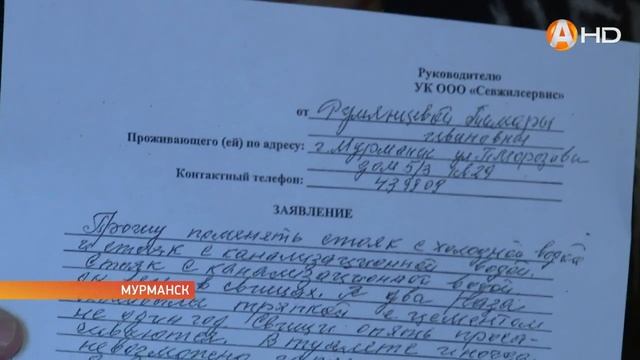 АHD
Руководителю
УК ООО «Севжилсервис»
от Румянцевой Тамары
Ивановны
Проживающего (ей) по адресу: г. Мурманск ул. П. Морозова
дом 5/3 кв 29
Контактный телефон: 439909
ЗАЯВЛЕНИЕ
Прошу поменять стояк с холодной водой
и стояк с канализационной водой.
Стояк с канализационной водой
в свищах. Я два раза
тряпкой с цементом
не один год. Свищи опять
В туалете
невозможно
МУРМАНСК